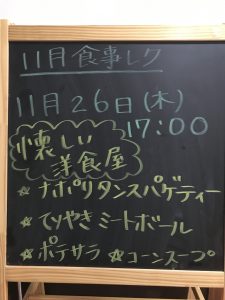 11月食事レク
11月26日(木)
17:00
懐しい
洋食屋
☆ナポリタンスパゲティー
☆てりやきミートボール
☆ポテサラ ☆コーンスープ